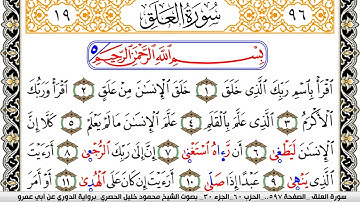 ٩٦ سُورَةُ الْعَلَقِ ١٩
بِسْمِ اللَّهِ الرَّحْمَٰنِ الرَّحِيمِ
اقْرَأْ بِاسْمِ رَبِّكَ الَّذِي خَلَقَ ١ خَلَقَ الْإِنسَٰنَ مِنْ عَلَقٍ ٢ اقْرَأْ وَرَبُّكَ
الْأَكْرَمُ ٣ الَّذِي عَلَّمَ بِالْقَلَمِ ٤ عَلَّمَ الْإِنسَٰنَ مَا لَمْ يَعْلَمْ ٥ كَلَّا إِنَّ
الْإِنسَٰنَ لَيَطْغَىٰ ٦ أَن رَّءَاهُ اسْتَغْنَىٰ ٧ إِنَّ إِلَىٰ رَبِّكَ الرُّجْعَىٰ ٨ أَرَءَيْتَ
الَّذِي يَنْهَىٰ ٩ عَبْدًا إِذَا صَلَّىٰ ١٠ أَرَءَيْتَ إِن كَانَ عَلَى الْهُدَىٰ ١١ أَوْ أَمَرَ
سورة العلق . الصفحة ٥٩٧ . الحزب ٦٠ . الجزء ٣٠ . بصوت الشيخ محمود خليل الحصري برواية الدوري عن أبي عمرو